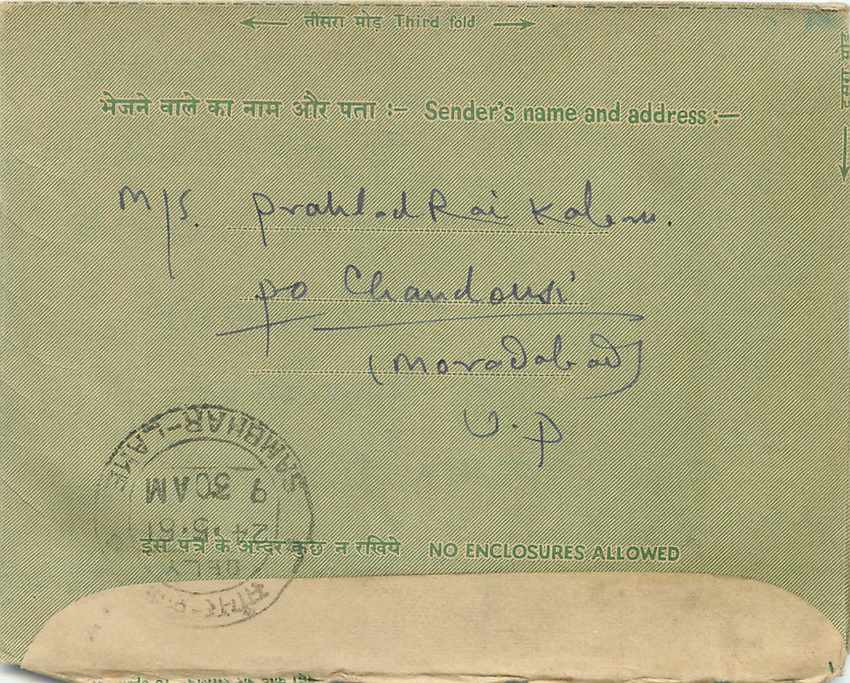 तीसरा मोड़ Third fold
दूसरा मोड़
भेजने वाले का नाम और पता :— Sender's name and address :—
M/S. Prahlad Rai Kalem.
PO Chandausi
(Moradabad)
U.P
SAMBHAR-LAKE
9 30 AM
24.5.61
DELY
इस पत्र के अन्दर कुछ न रखिये NO ENCLOSURES ALLOWED